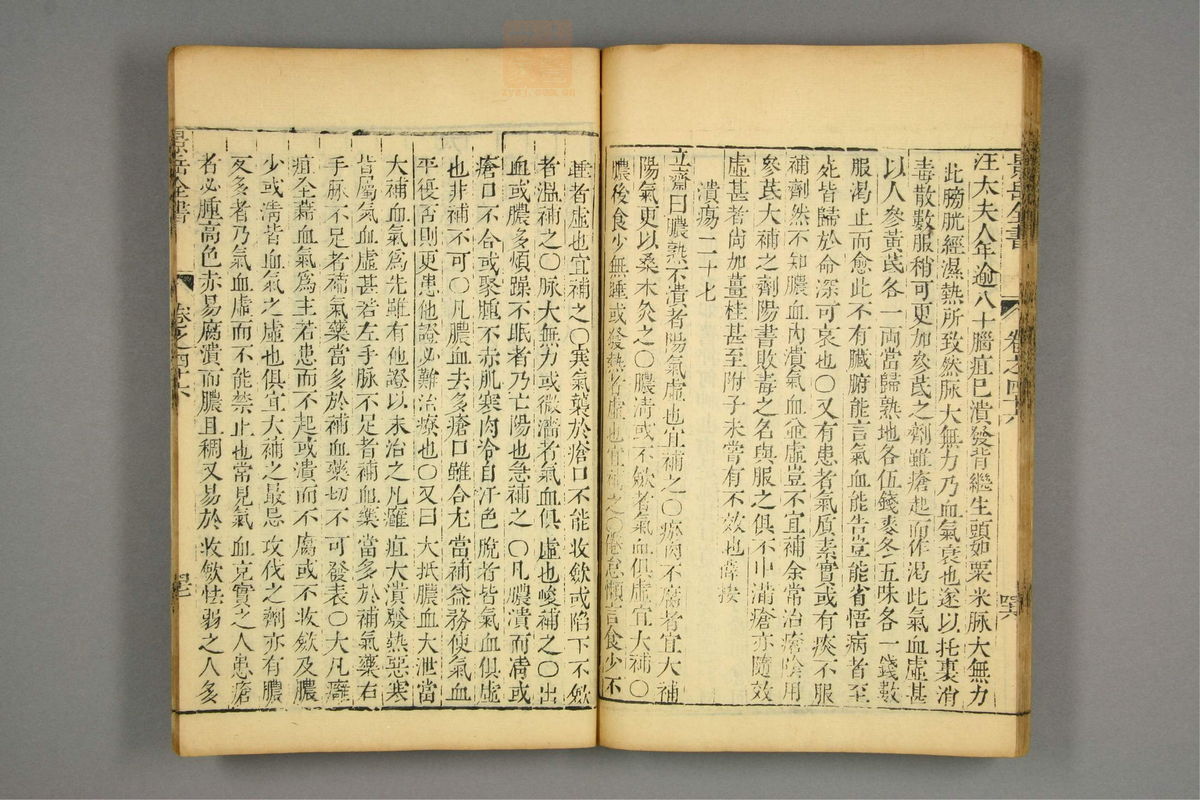 景岳全書
卷之四十六
汪夫夫人年逾八十腦疽已潰發背繼生頭如粟米脉大無力
此膀胱經濕熱所致然脉大無力乃血氣衰也遂以托裏消
毒散數服稍可更加參芪之劑雖瘡起而作渴此氣血虛甚
以人參黃芪各一兩當歸熟地各伍錢麥冬五味各一錢數
服渴止而愈此不有臟腑能言氣血能告豈能省悟病者至
死皆歸於命深可哀也○又有患者氣质素實或有痰不服
補劑然不知膿血內潰氣血並虛豈不宜補余常治瘡陰用
參芪大補之劑陽書敗毒之名與服之俱不中滿瘡亦隨效
虛甚者尚加薑桂甚至附子未嘗有不效也薛按
潰瘍二十七
立齋曰膿熟不潰者陽氣虛也宜補之○瘀肉不腐者宜大補
陽氣更以桑木灸之○膿清或不歛者氣血俱虛宜大補○
膿後食少無睡或發熱者虛也宜補之○倦怠懶言食少不
睡者虛也宜補之○寒氣襲於瘡口不能收歛或陷下不歛
者溫補之○脉大無力或微濇者氣血俱虛也峻補之○出
血或膿多煩躁不眠者乃亡陽也急補之○凡膿潰而清或
瘡口不合或聚腫不赤肌寒肉冷自汗色脫者皆氣血俱虛
也非補不可○凡膿血去多瘡口雖合尤當補益務使氣血
平復否則更患他證必難治療也○又曰大抵膿血大泄當
大補血氣爲先雖有他證以末治之凡癰疽大潰發熱惡寒
皆屬氣血虛甚若左手脉不足者補血藥當多於補氣藥右
手脉不足者補氣藥當多於補血藥切不可發表○大凡癰
疽全藉血氣爲主若患而不起或潰而不腐或不收歛及膿
少或清皆血氣之虛也俱宜大補之最忌攻伐之劑亦有膿
反多者乃氣血虛而不能禁止也常見氣血充實之人患瘡
者必腫高色赤易腐潰而膿且稠又易於收歛怯弱之人多
景岳全書
卷之四十六